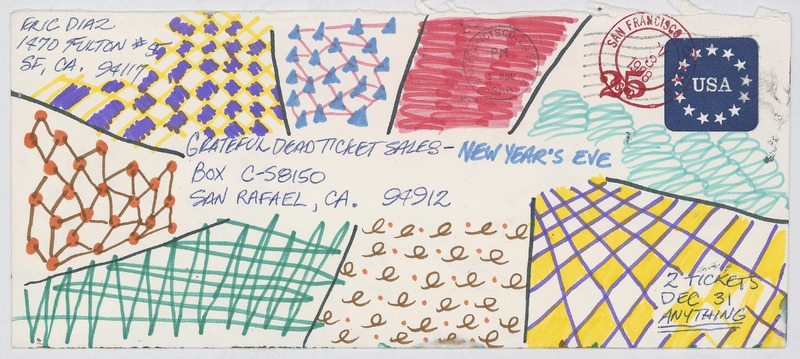 ERIC DIAZ
1470 FULTON #
SF, CA. 94117
GRATEFUL DEAD TICKET SALES - NEW YEAR'S EVE
BOX C-S8150
SAN RAFAEL, CA. 94912
SAN FRANCISCO
1988
25
USA
PM
2 TICKETS
DEC 31
ANYTHING